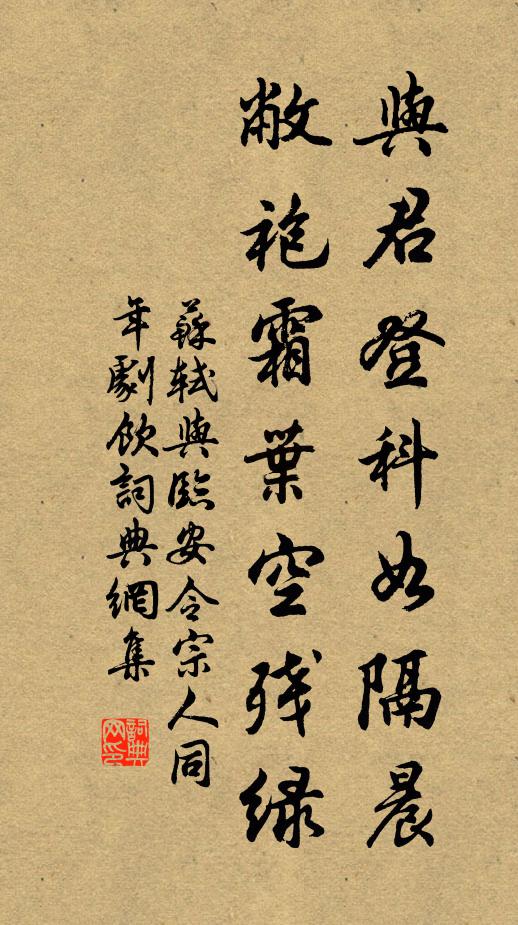 與君登科如隔晨
敝袍霜葉空残緑
蘇軾與臨安令宗人同
年劇飲詞典網集
詞典
网印